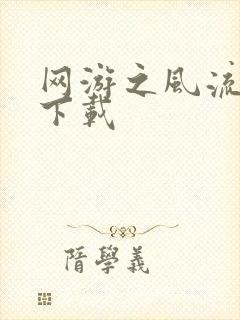 网游之風流
下載
隋學義